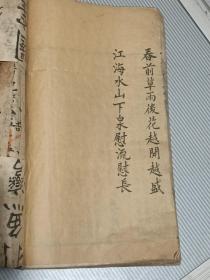 春前草雨後花越開越盛
江海水山下泉慰流慰長